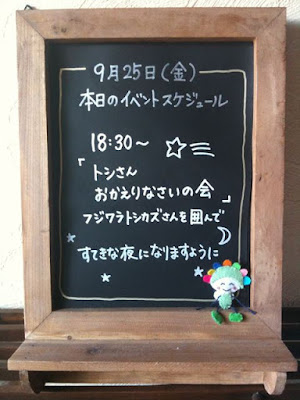 9月25日(金)
本日のイベントスケジュール
18:30〜
「トシさん
おかえりなさいの会」
フジワラトシカズさんを囲んで
すてきな夜になりますように